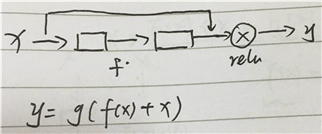 x y
f.
relu
y = g(f(x)+x)